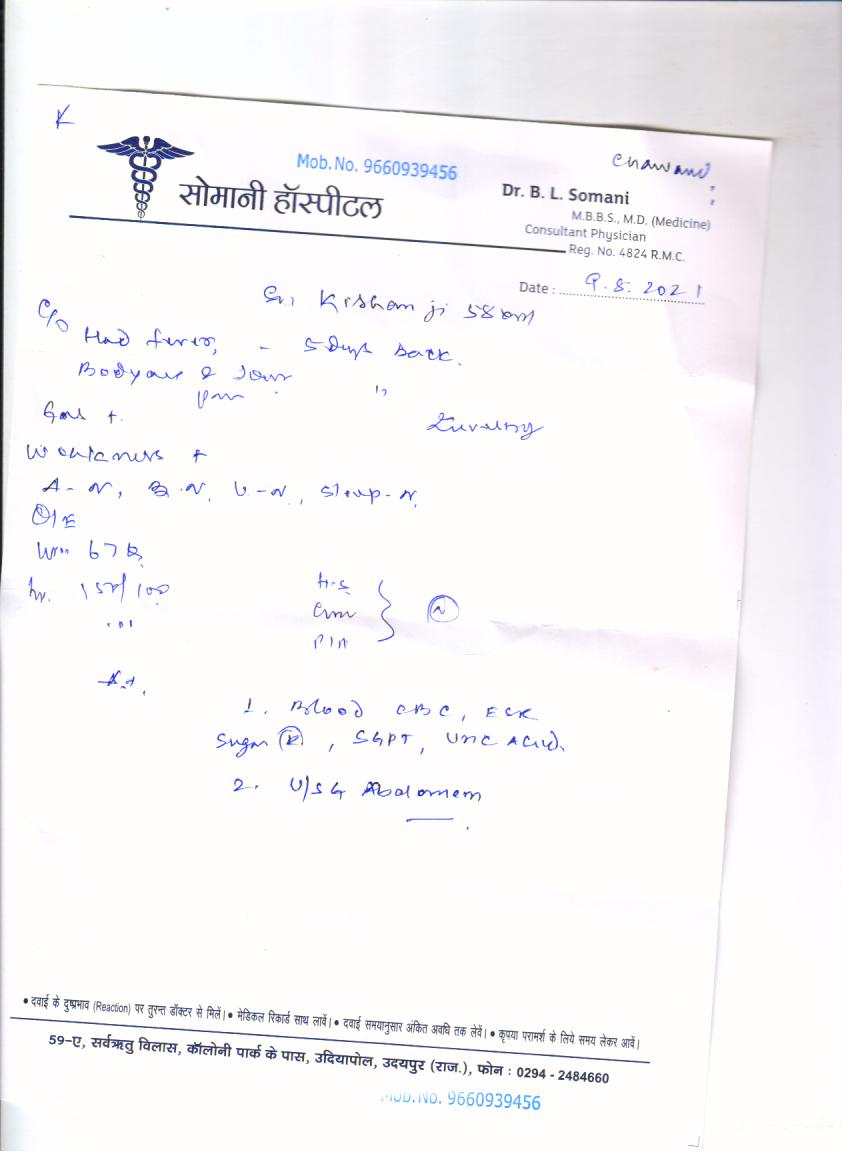 K
Mob.No. 9660939456
Chawand
सोमानी हॉस्पीटल
Dr. B. L. Somani
M.B.B.S., M.D. (Medicine)
Consultant Physician
Reg. No. 4824 R.M.C.
Date : 9.8.2021
Kishan ji 58
C/O Had fever, - 5 Days Back.
Gas +.
Weakness +
A-N, B-N, U-N, Sleep-N.
O/E
67
150/100
H.S
P/A
N
1. Blood CBC, ESR
Sugar (R), SGPT, Uric Acid.
2. U/SG Abdomem
• दवाई के दुष्प्रभाव (Reaction) पर तुरन्त डॉक्टर से मिलें। • मेडिकल रिकार्ड साथ लावें। • दवाई समयानुसार अंकित अवधि तक लेवें। • कृपया परामर्श के लिये समय लेकर आवें।
59-ए, सर्वऋतु विलास, कॉलोनी पार्क के पास, उदियापोल, उदयपुर (राज.), फोन : 0294 - 2484660
Mob.No. 9660939456